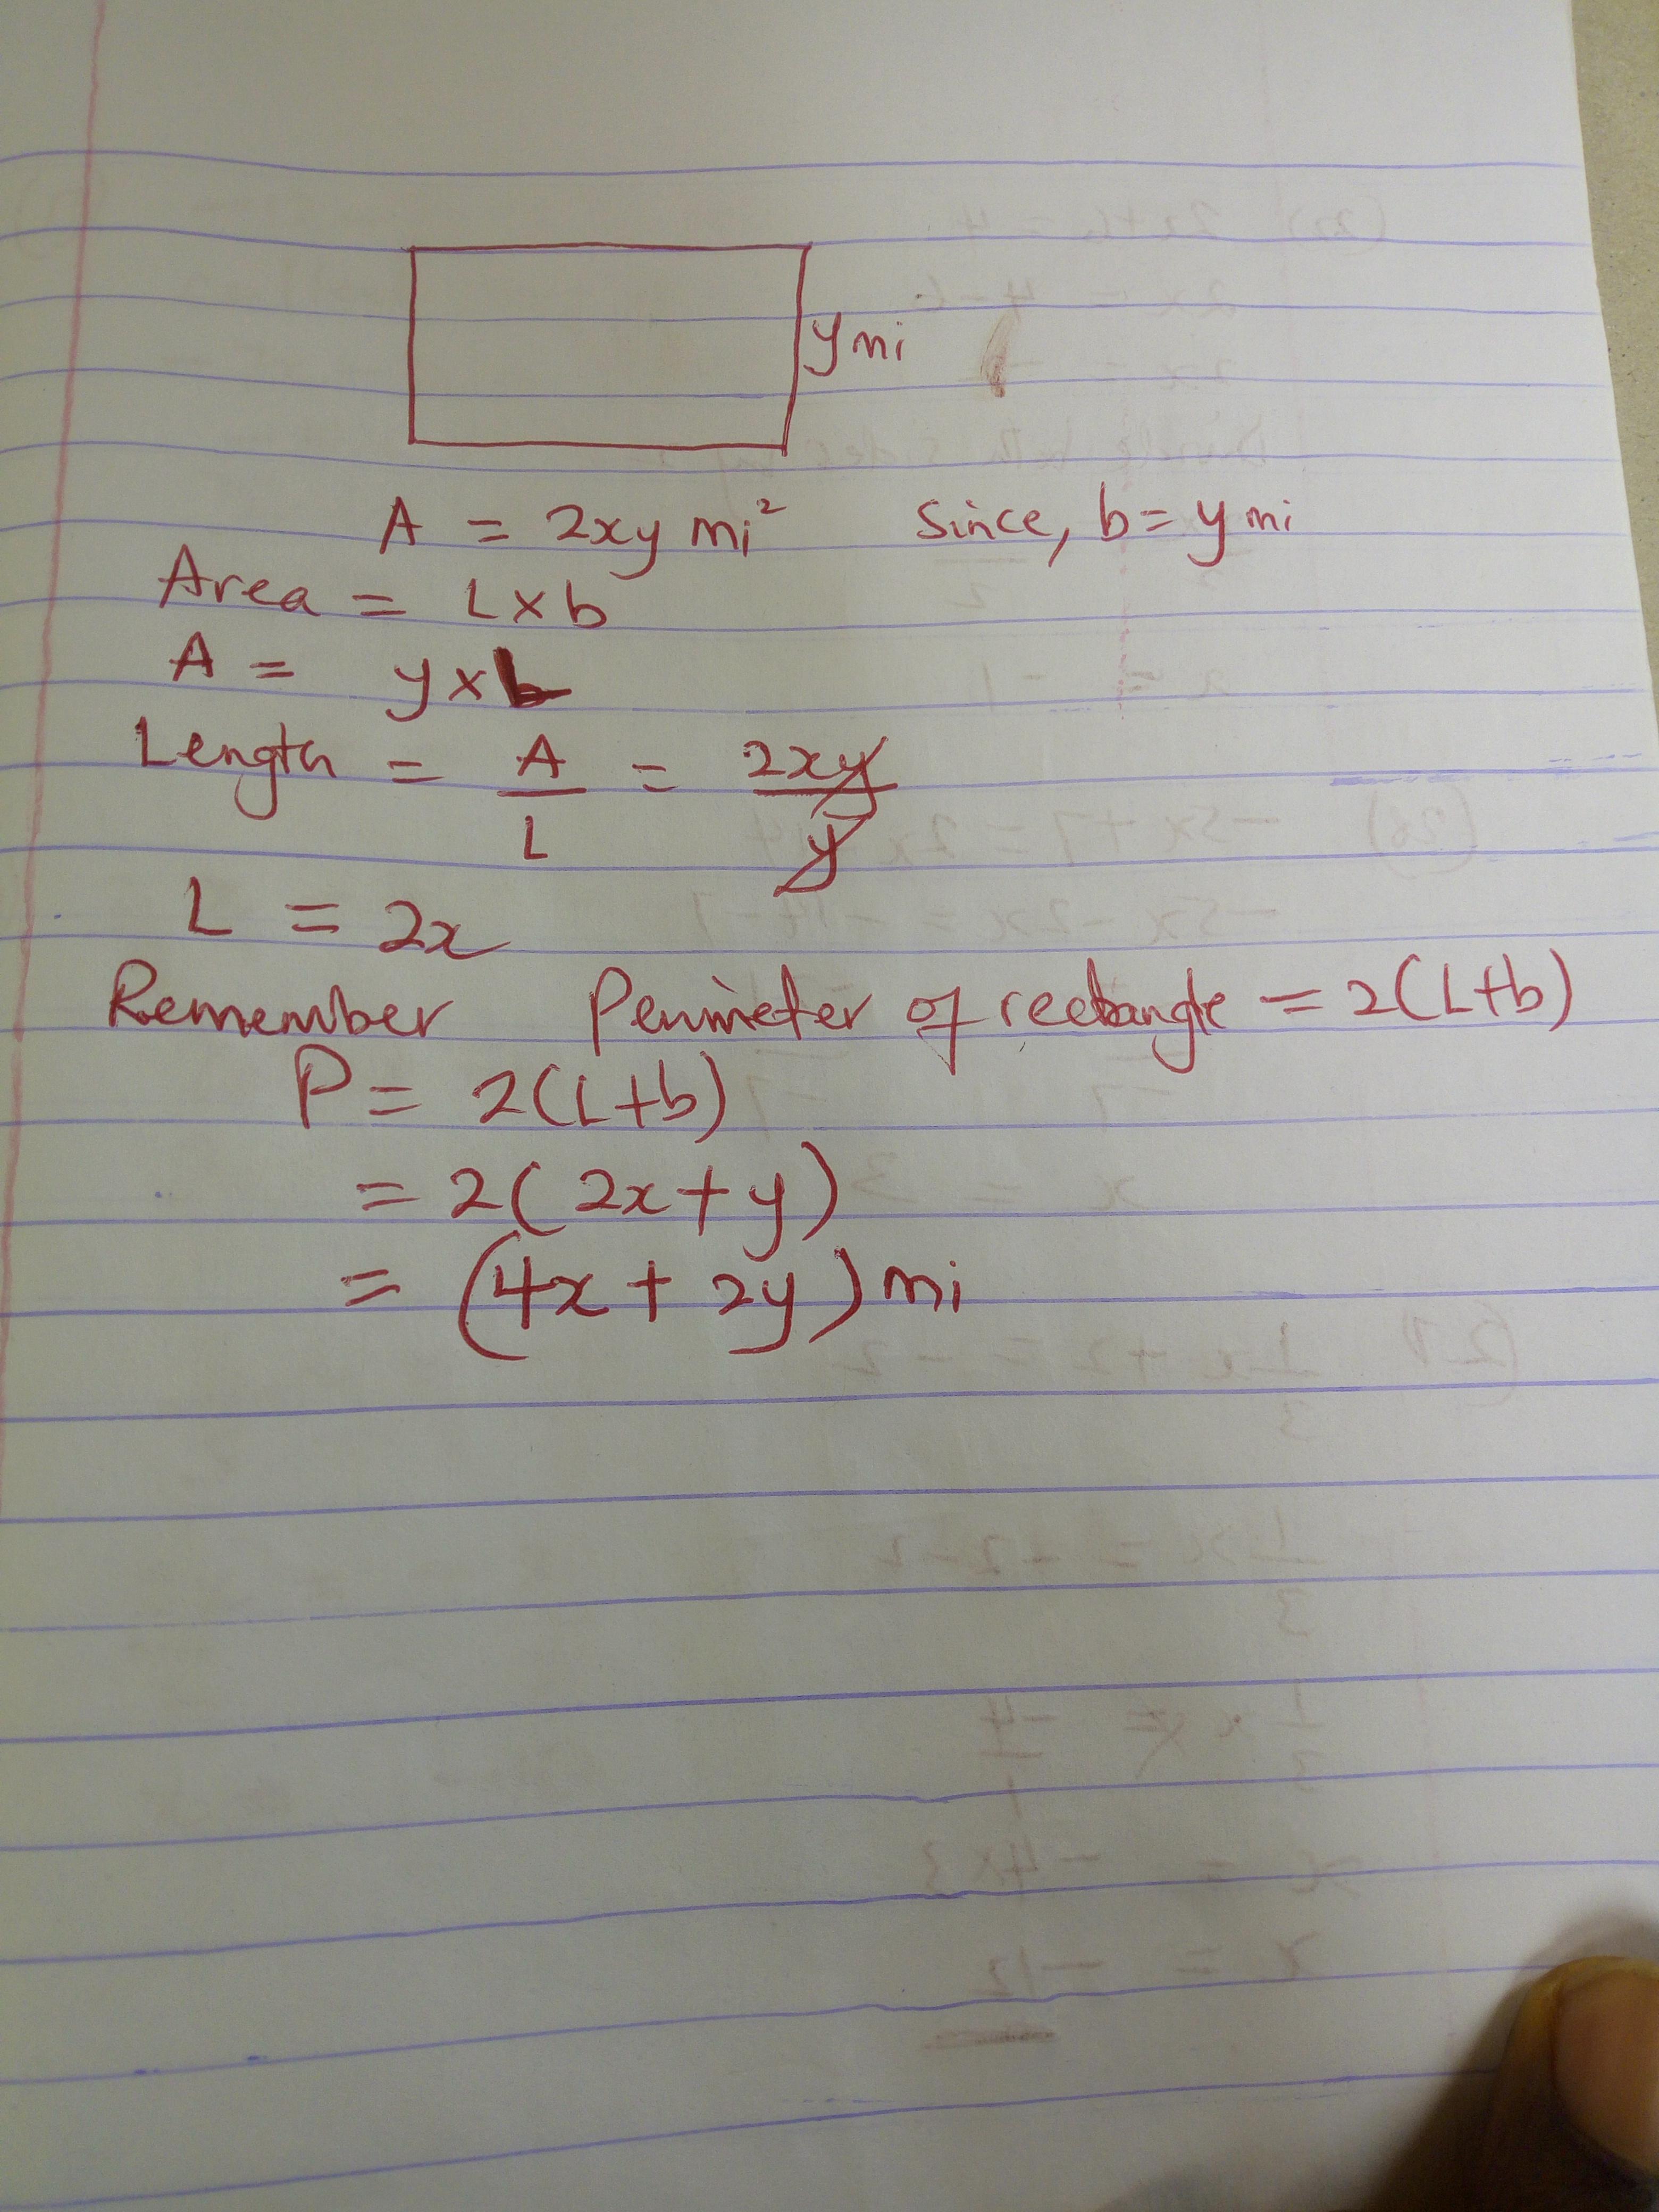 y mi
A = 2xy mi² Since, b = y mi
Area = L x b
A = y x b
Length = A/L = 2xy/y
L = 2x
Remember Perimeter of rectangle = 2(L+b)
P = 2(L+b)
= 2(2x+y)
= (4x + 2y) mi